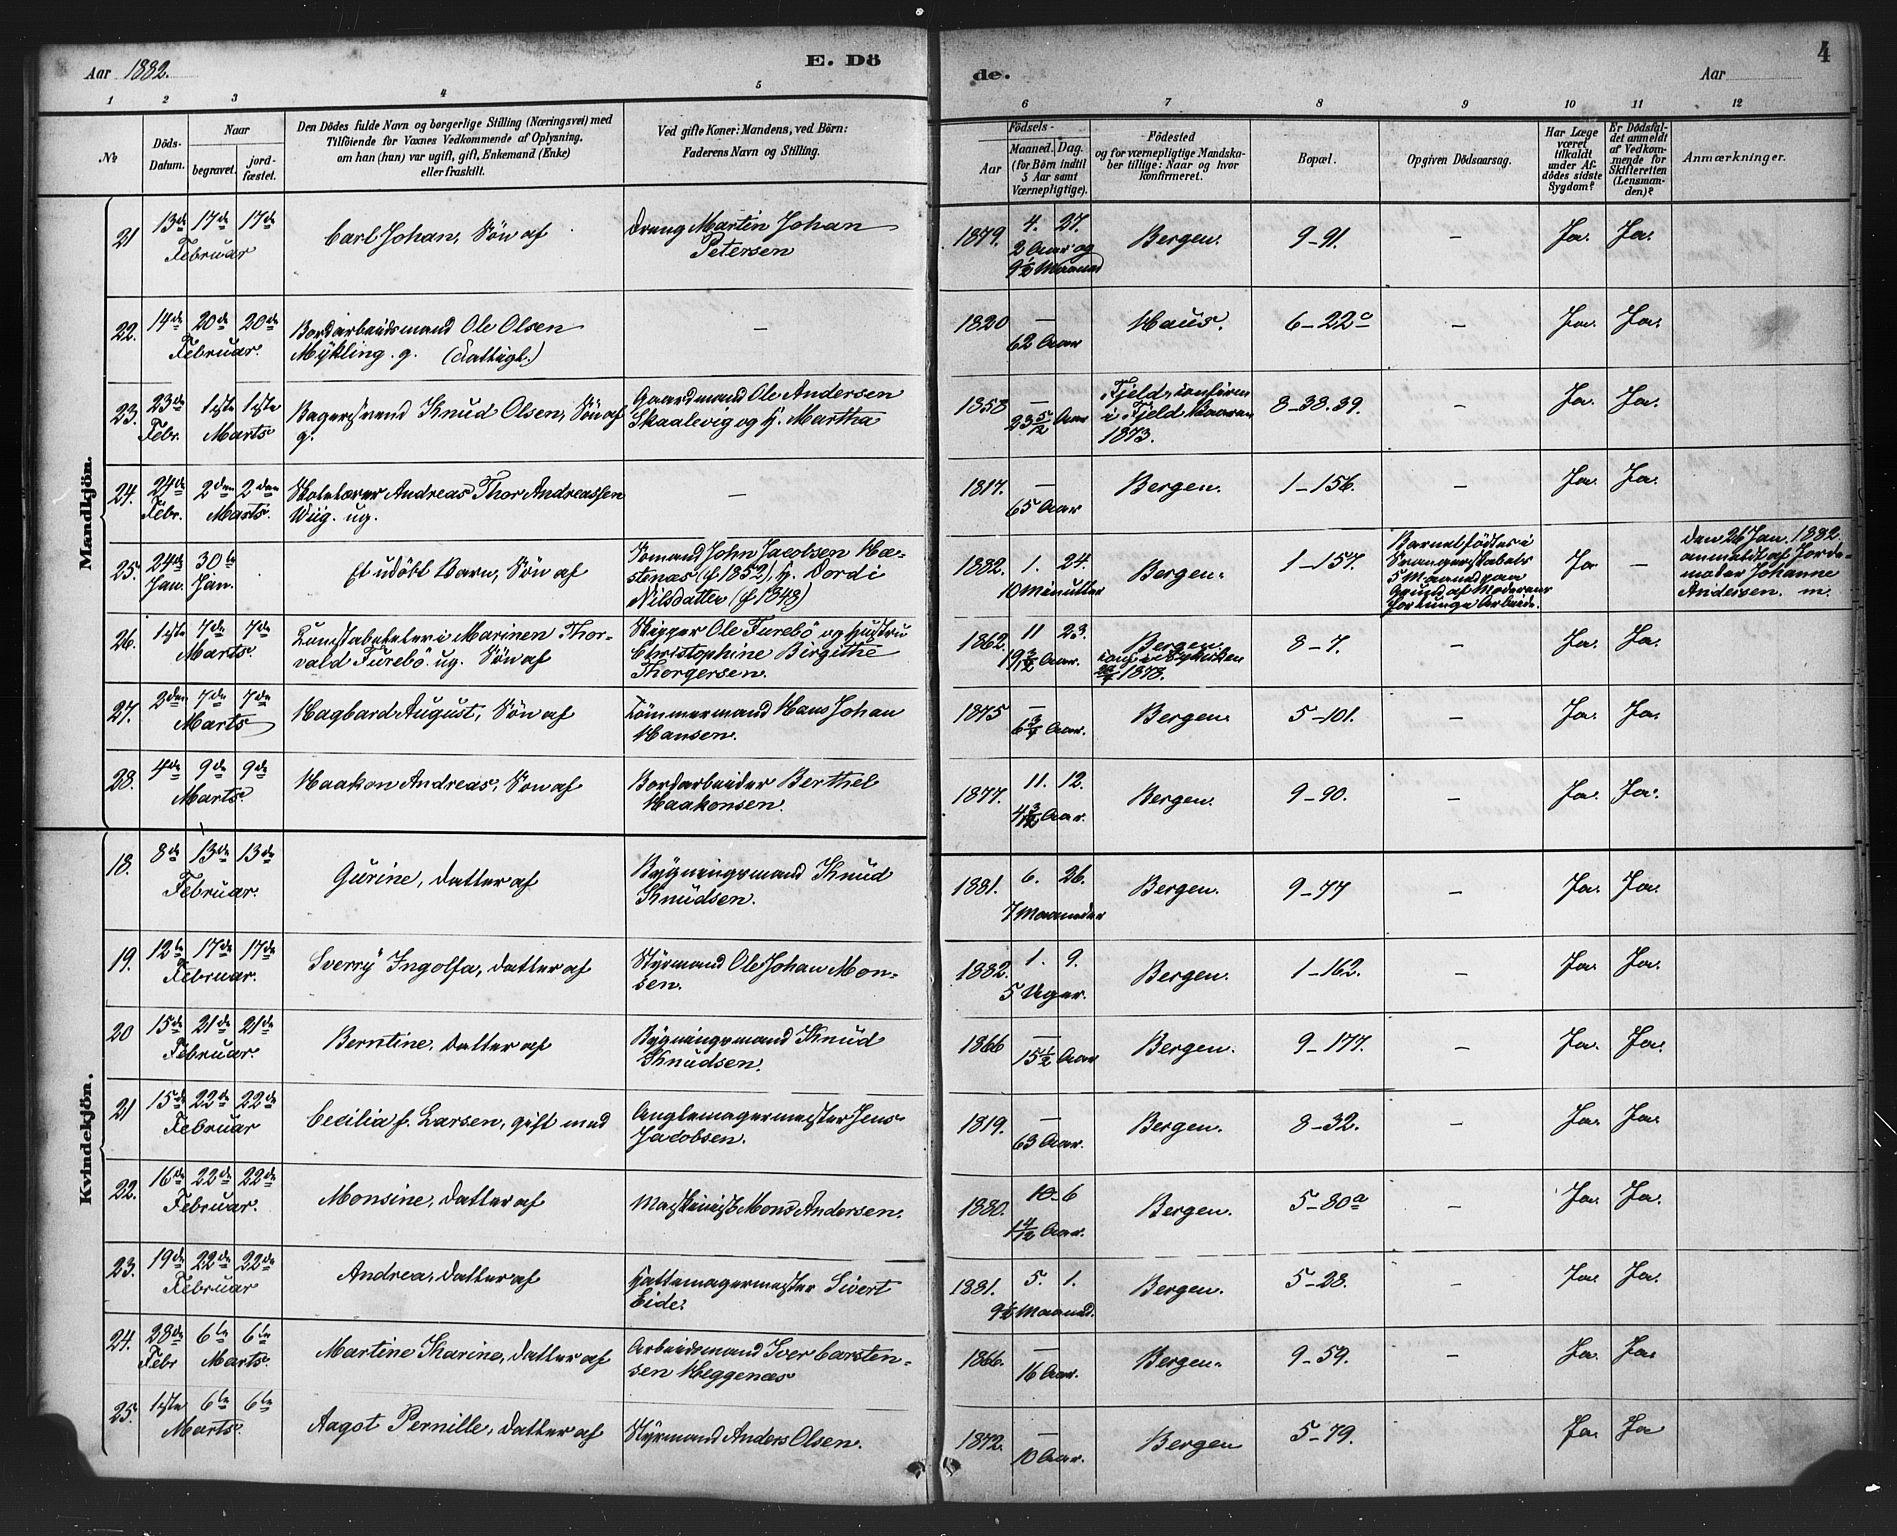 Aar 1882.
E. Dö
de.
Aar
4
1 2 3 4 5 6 7 8 9 10 11 12
No
Döds-Datum.
Naar
begravet.
jord-fæstet.
Den Dödes fulde Navn og borgerlige Stilling (Næringsvei) med
Tilföiende for Voxnes Vedkommende af Oplysning,
om han (hun) var ugift, gift, Enkemand (Enke)
eller fraskilt.
Ved gifte Koner: Mandens, ved Börn:
Faderens Navn og Stilling.
Födsels-
Aar
Maaned. Dag.
(for Börn indtil
5 Aar samt
Værnepligtige).
Födested
og for værnepligtige Mandska-
ber tillige: Naar og hvor
konfirmeret.
Bopæl.
Opgiven Dödsaarsag.
Har Læge
været
tilkaldt
under Af-
dödes sidste
Sygdom?
Er Dödsfal-
det anmeldt
af Vedkom-
mende for
Skifteretten
(Lensman-
den)?
Anmærkninger.
Mandkjön.
21 13de 17de 17de Februar Carl Johan, Sön af Dreng Martin Johan Petersen 1879. 4. 27. 2 Aar og 9½ Maaned Bergen. 9-91. – Ja. Ja.
22. 14de 20de 20de Februar. Bordarbeidsmand Ole Olsen Mykling. g. (Fattigl.) – 1820 – 62 Aar Haus. 6-22c – Ja. Ja.
23. 23de Febr. 1ste 1ste Marts Knud Olsen, Sön af g. Gaardmand Ole Andersen Skaalevig og H. Martha 1858 – 23 5/12 Aar Fjeld, konfirm. i Fjeld 1873. 8-38.39. – Ja. Ja.
24. 24de Febr. 2den 2den Marts. Skolelærer Andreas Thor Andreassen Wiig. ug. – 1817. – 65 Aar Bergen. 1-156. – Ja. Ja.
25. 24de Jan. 30te Jan. Et udöbt Barn, Sön af Sömand John Jacobsen Hæ-
stenæs (f 1852), H. Dordi
Nilsdatter (f 1848) 1882. 1. 24. 10 Minutter Bergen. 1-157. Barnet födtes i
Svangerskabets
5 Maaned paa
Grund af Moderens
fortunge Arbeide. Ja – den 26 Jan. 1882
anmeldt af Jorde-
moder Johanne
Andersen. m.
26. 1ste 7de 7de Marts. i Marinen Thor-
vald Furebö. ug. Sön af Skipper Ole Furebö og Hustru
Christophine Birgithe
Thorgersen. 1862. 11 23. 19 3/12 Aar. Bergen 1878. 8-7. – Ja. Ja.
27. 2den 7de 7de Marts Hagbard August, Sön af Tömmermand Hans Johan Hansen. 1875 – 6¾ Aar. Bergen. 5-101. – Ja. Ja.
28. 4de 9de 9de Marts. Haakon Andreas, Sön af Bordarbeider Berthel Haakonsen. 1877. 11. 12. 4 3/12 Aar. Bergen. 9-90. – Ja. Ja.
Kvindekjön.
18. 8de 13de 13de Februar. Gurine, Datter af Bygningsmand Knud Knudsen. 1881. 6. 26. 7 Maaneder Bergen. 9-77 – Ja. Ja.
19. 12te 17de 17de Februar. Sverry Ingolfa, Datter af Styrmand Ole Johan Mon-
sen. 1882. 1. 9. 5 Uger. Bergen. 1-162. – Ja. Ja.
20 15de 21de 21de Februar. Berntine, Datter af Bygningsmand Knud Knudsen. 1866 – 15½ Aar Bergen. 9-177. – Ja. Ja.
21 15de 22de 22de Februar Cecilia f. Larsen, gift med Jens Jacobsen. 1819. – 63 Aar. Bergen. 8-32. – Ja. Ja.
22. 16de 22de 22de Februar. Monsine, Datter af Maskinist Mons Andersen. 1880. 10-6 1 4/12 Aar. Bergen. 5-80a – Ja. Ja.
23. 19de 22de 22de Februar Andrea, Datter af Hattemagermester Sivert Eide. 1881. 5. 1. 9½ Maaned. Bergen. 5-28. – Ja. Ja.
24. 28de Febr 6te 6te Marts. Martine Karine, Datter af Arbeidsmand Iver Carsten-
sen Heggenæs 1866. – 16 Aar. Bergen. 9-59. – Ja. Ja.
25. 1ste 6te 6te Marts. Aagot Pernille, Datter af Styrmand Anders Olsen. 1872. – 10 Aar. Bergen 5-79. – Ja. Ja